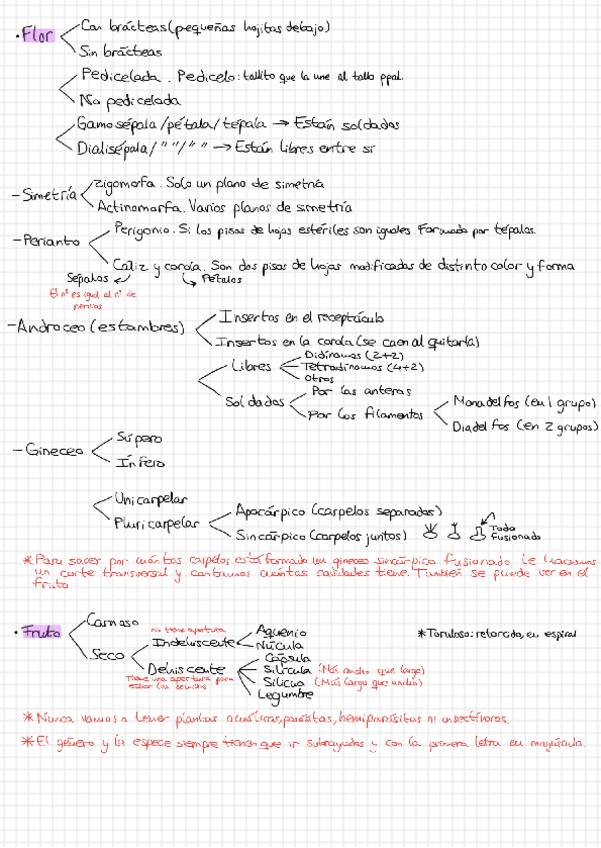 · Flor
Con brácteas (pequeñas hojitas debajo)
Sin brácteas
Pedicelada. Pedicelo: tallito que la une al tallo ppal.
No pedicelada
Gamosépala/pétala/tépala → Están soldados
Dialisépala/ " "/ " " → Están libres entre sí
- Simetría
Zigomorfa. Solo un plano de simetría
Actinomorfa. Varios planos de simetría
- Perianto
Perigonio. Si los pisos de hojas estériles son iguales. Formado por tépalos.
Cáliz y corola. Son dos pisos de hojas modificadas de distinto color y forma
Sépalos
Pétalos
El nº es igual al nº de
- Androceo (estambres)
Insertos en el receptáculo
Insertos en la corola (se caen al quitarla)
Libres
Didínamos (2+2)
Tetradínamos (4+2)
Otros
Soldados
Por las anteras
Por los filamentos
Monadelfos (en 1 grupo)
Diadelfos (en 2 grupos)
- Gineceo
Súpero
Ínfero
Unicarpelar
Pluricarpelar
Apocárpico (carpelos separados)
Sincárpico (carpelos juntos)
Todo
fusionado
* Para saber por cuántos carpelos está formado un gineceo sincárpico fusionado le hacemos
un corte transversal y contamos cuántas cavidades tiene. También se puede ver en el
fruto
· Fruto
Carnoso
Seco
No tiene apertura
Indehiscente
Aquenio
Núcula
Dehiscente
Tiene una apertura para
soltar las semillas
Cápsula
Silícula (Más ancho que largo)
Silicua (Más largo que ancho)
Legumbre
* Toruloso: retorcido, en espiral
* Nunca vamos a tener plantas acuáticas, parásitas, hemiparásitas ni insectívoras.
* El género y la especie siempre tienen que ir subrayados y con la primera letra en mayúscula.